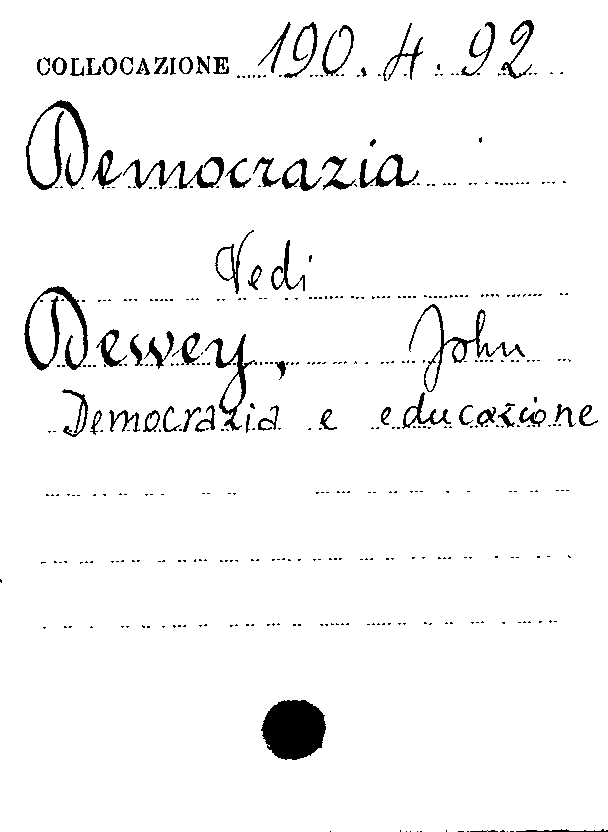 COLLOCAZIONE 190.H.92
Democrazia
Vedi
Dewey, John
Democrazia e educazione